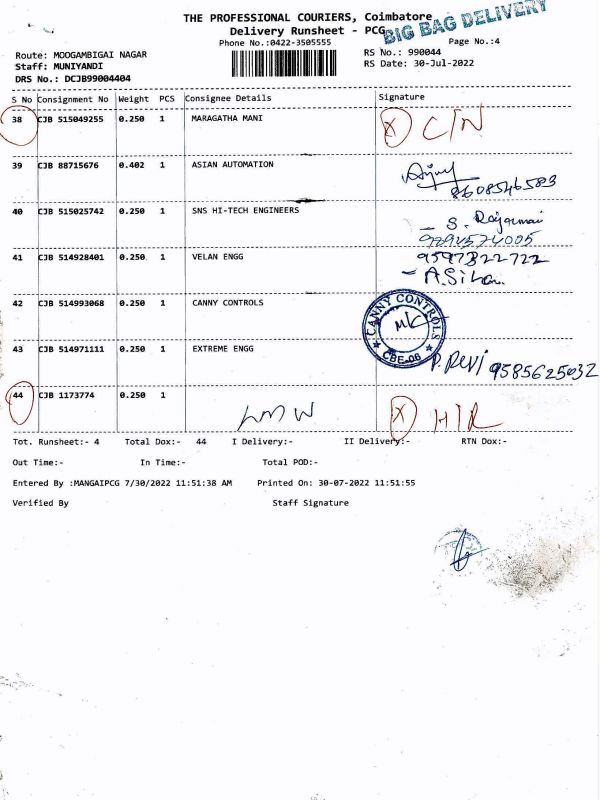 THE PROFESSIONAL COURIERS, Coimbatore
Delivery Runsheet - PCG
BIG BAG DELIVERY
Phone No.:0422-3505555
Page No.:4
Route: MOOGAMBIGAI NAGAR
RS No.: 990044
Staff: MUNIYANDI
RS Date: 30-Jul-2022
DRS No.: DCJB99004404
S No Consignment No Weight PCS Consignee Details Signature
38 CJB 515049255 0.250 1 MARAGATHA MANI X C/N
39 CJB 88715676 0.402 1 ASIAN AUTOMATION
8608546583
40 CJB 515025742 0.250 1 SNS HI-TECH ENGINEERS
41 CJB 514928401 0.250 1 VELAN ENGG 9597822722
42 CJB 514993068 0.250 1 CANNY CONTROLS
CANNY CONTROLS
CBE-06
43 CJB 514971111 0.250 1 EXTREME ENGG
P. Devi 9585625032
44 CJB 1173774 0.250 1
LMW X H/R
Tot. Runsheet:- 4 Total Dox:- 44 I Delivery:- II Delivery:- RTN Dox:-
Out Time:- In Time:- Total POD:-
Entered By :MANGAIPCG 7/30/2022 11:51:38 AM Printed On: 30-07-2022 11:51:55
Verified By Staff Signature